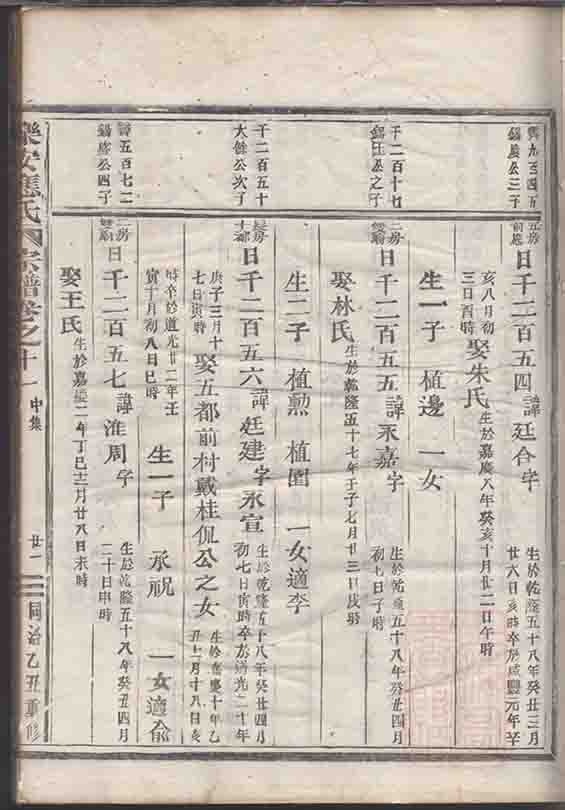 日千二百五四 諱廷合字
生於乾隆五十八年癸丑三月
廿六日亥時卒於咸豐元年辛
亥八月初
三日酉時
娶朱氏
生於嘉慶八年癸亥十月廿二日午時
生一子 植邊 一女
千二百十七
二房
日千二百五五 諱永嘉字
生於乾隆五十八年癸丑四月
初七日子時
娶林氏
生於乾隆五十七年壬子七月廿三日戌時
生二子 植勲 植園 一女適李
千二百五十
大餘公次子
日千二百五六 諱廷建字永宣
生於乾隆五十八年癸丑四月
初七日寅時卒於道光二十年
庚子三月十
七日寅時
娶五都前村戴桂侃公之女
生於嘉慶十年乙
丑十一月十八日亥
時卒於道光廿二年壬
寅十月初八日巳時
生一子 承祝 一女適俞
五百七二
二房
日千二百五七 諱淮周字
生於乾隆五十八年癸丑四月
二十日申時
娶王氏
生於嘉慶二年丁巳十二月廿八日未時
樂安應氏宗譜卷之十一
中集
廿一
同治乙丑重修